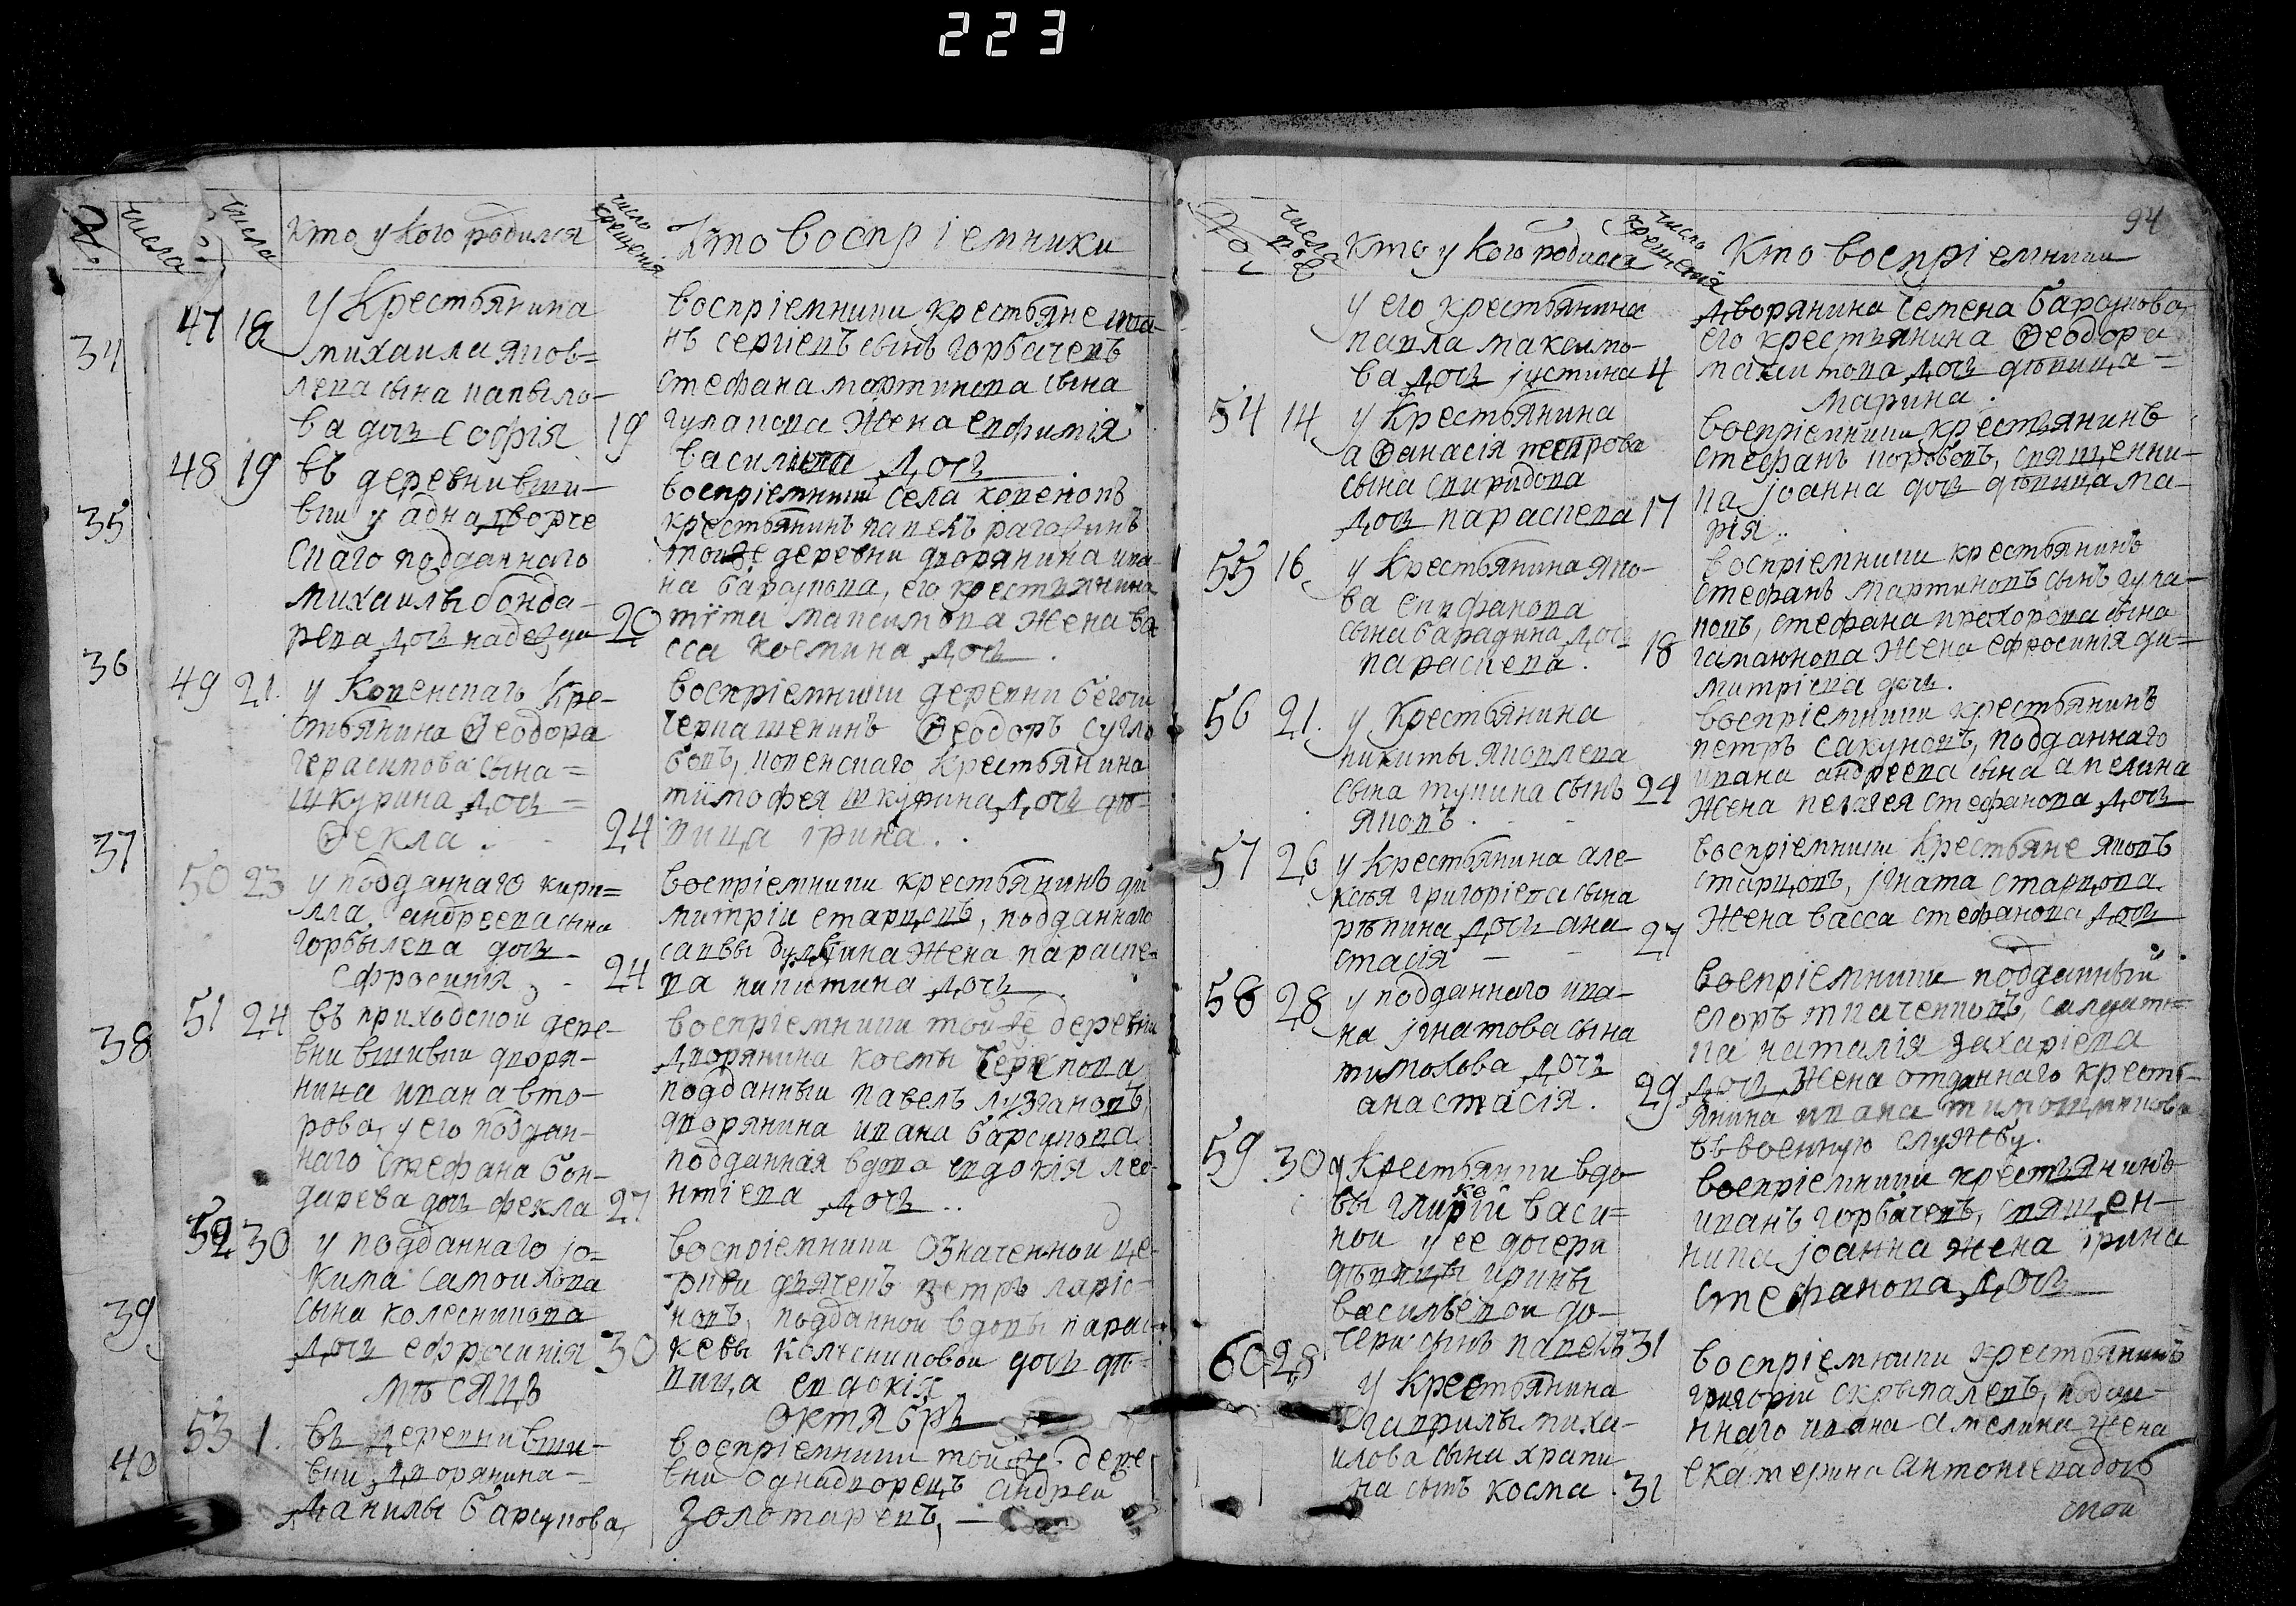 223
94
№ числа числа Кто у кого родился число крещенія Кто воспріемники
47 18 У Крестьянина
34 михаила яков=
лева сына напыло-
ва дочь Софія 19
воспріемники крестьяне
сергіевъ сынъ горбачевъ
стефана мартинова сына
гулакова жена евфимія
василиева дочь
48 19 въ деревни вши-
35 вки у аднадворче
скаго подданнаго
михаилы бонда-
рева дочь надежда 20
воспріемники села копенокъ
крестьянинъ павелъ рагозинъ
тойже деревни дворянина ива-
на барсукова, его крестьянина
тита максимова жена ва
сса космина дочь.
36
49 21. у Копенскаго Кре-
стьянина Ѳеодора
герасимова сына=
шкурина дочь=
Ѳекла. 24
воспріемники деревни бегочи
черкашенинъ Ѳеодоръ сугло
бовъ, копенскаго Крестьянина
тимофея шкурина дочь дѣ-
вица ірина..
37
50 23 у подданнаго кири=
лла андреева сына
горбылева дочь-
Ефросинія 24
воспріемники крестьянинъ ди
митріи старцевъ, подданнаго
саввы жена параске-
ва никитина дочь
51 24 въ приходской дере-
38 вни вшивки дворя-
нина ивана вто-
рова, у его поддан-
наго стефана бон-
дарева дочь фекла 27
воспріемники тойже деревни
дворянина косты
подданныи павелъ лузгановъ,
дворянина ивана барсукова
подданная вдова евдокія лео-
нтіева дочь..
52 30 у подданнаго іо=
кима самоилова
сына колесникова
39 дочь ефросинія 30
воспріемники означенной це-
ркви дьячекъ петръ ларіо-
новъ, подданной вдовы парас-
кевы колесниковой дочь дѣ=
вица евдокія
мѣсяцъ октябрь
53 1. въ деревни вши-
40 вки дворянина=
Данилы барсукова,
воспріемники тойже дере-
вни однадворецъ андреи
золотаревъ, —
№ числа Кто у кого родился число крещенія Кто воспріемники
у его крестьянина
павла максимо-
ва дочь іустина 4
дворянина Семена барсукова,
его крестьянина Ѳеодора
максимова дочь дѣвица=
марина.
54 14 у Крестьянина
аѲанасія петрова
сына спиридова
дочь параскева 17
воспріемники крестьянинъ
стефанъ священни-
ка іоанна дочь дѣвица ма-
рія..
55 16 у Крестьянина яко-
ва епифанова
сына барадина дочь
параскева. 18
воспріемники крестьянинъ
стефанъ мартиновъ сынъ гула-
ковъ, стефана прохорова сына
гамаюнова жена ефросинія ди=
митріева дочь.
56 21. у Крестьянина
никиты яковлева
сына тупина сынъ 24
яковъ.
воспріемники крестьянинъ
петръ сакуновъ, подданнаго
ивана андреева сына амелина
жена пелагея стефанова дочь
57 26 у Крестьянина але-
ксѣя григоріева сына
рѣпина дочь ана 27
стасія
воспріемники Крестьяне яковъ
старцовъ, игната старцова
жена васса стефанова дочь
58 28 у подданнаго ива-
на ігнатова сына
тимохова дочь
анастасія. 29
воспріемники подданный
егоръ ткаченковъ, салдатс=
ка наталія захаріева
дочь жена отданнаго кресть-
янина ивана
въ военную службу.
59 30 у Крестьянки вдо
вы васи=
кои у ее дочери
дѣвицы ирины
васильевои до-
чери сынъ павелъ 31
воспріемники крестьянинъ
иванъ горбачевъ, священ-
ника іоанна жена ірина
стефанова дочь
60 28 у Крестьянина
гаврилы миха-
илова сына храпи
на сынъ косма. 31
воспріемники крестьянинъ
григоріи скрыпалевъ, подда-
ннаго ивана амелина жена
екатерина антоніева дочь